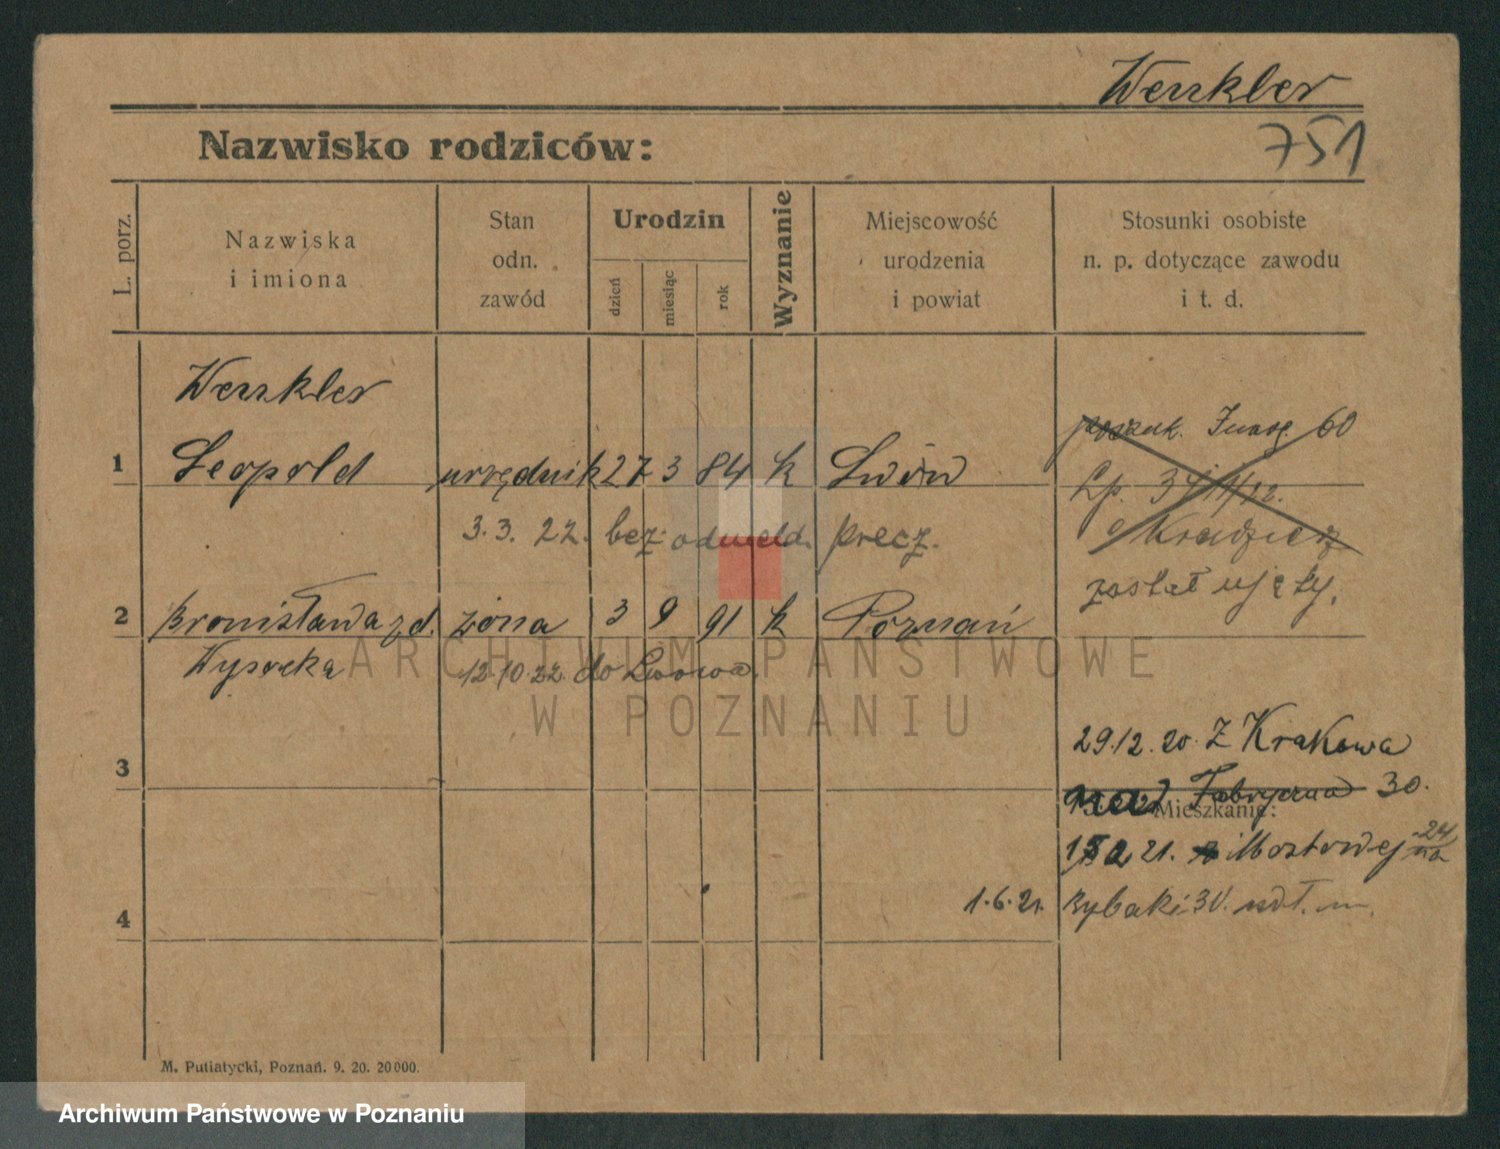 Wenkler
751
Nazwisko rodziców:
L. porz.
Nazwiska
i imiona
Stan
odn.
zawód
Urodzin
dzień
miesiąc
rok
Wyznanie
Miejscowość
urodzenia
i powiat
Stosunki osobiste
n. p. dotyczące zawodu
i t. d.
Wenkler
1 Leopold urzędnik 27 3 84 k Lwów
poszuk. 60
Lp. 3
3.3. 22. bez odmeld. precz.
Kradzież
został ujęty.
2 Bronisława zd. żona 3 9 91 k Poznań
Wysocka 12.10.22. do Lwowa
ARCHIWUM PAŃSTWOWE
W POZNANIU
29.12.20. Z Krakowa
3
Fabryczna 30.
Mieszkanie:
21. Mostowej 24
na
1.6.21. Rybaki 30.
4
M. Putiatycki, Poznań. 9. 20. 20000.
Archiwum Państwowe w Poznaniu